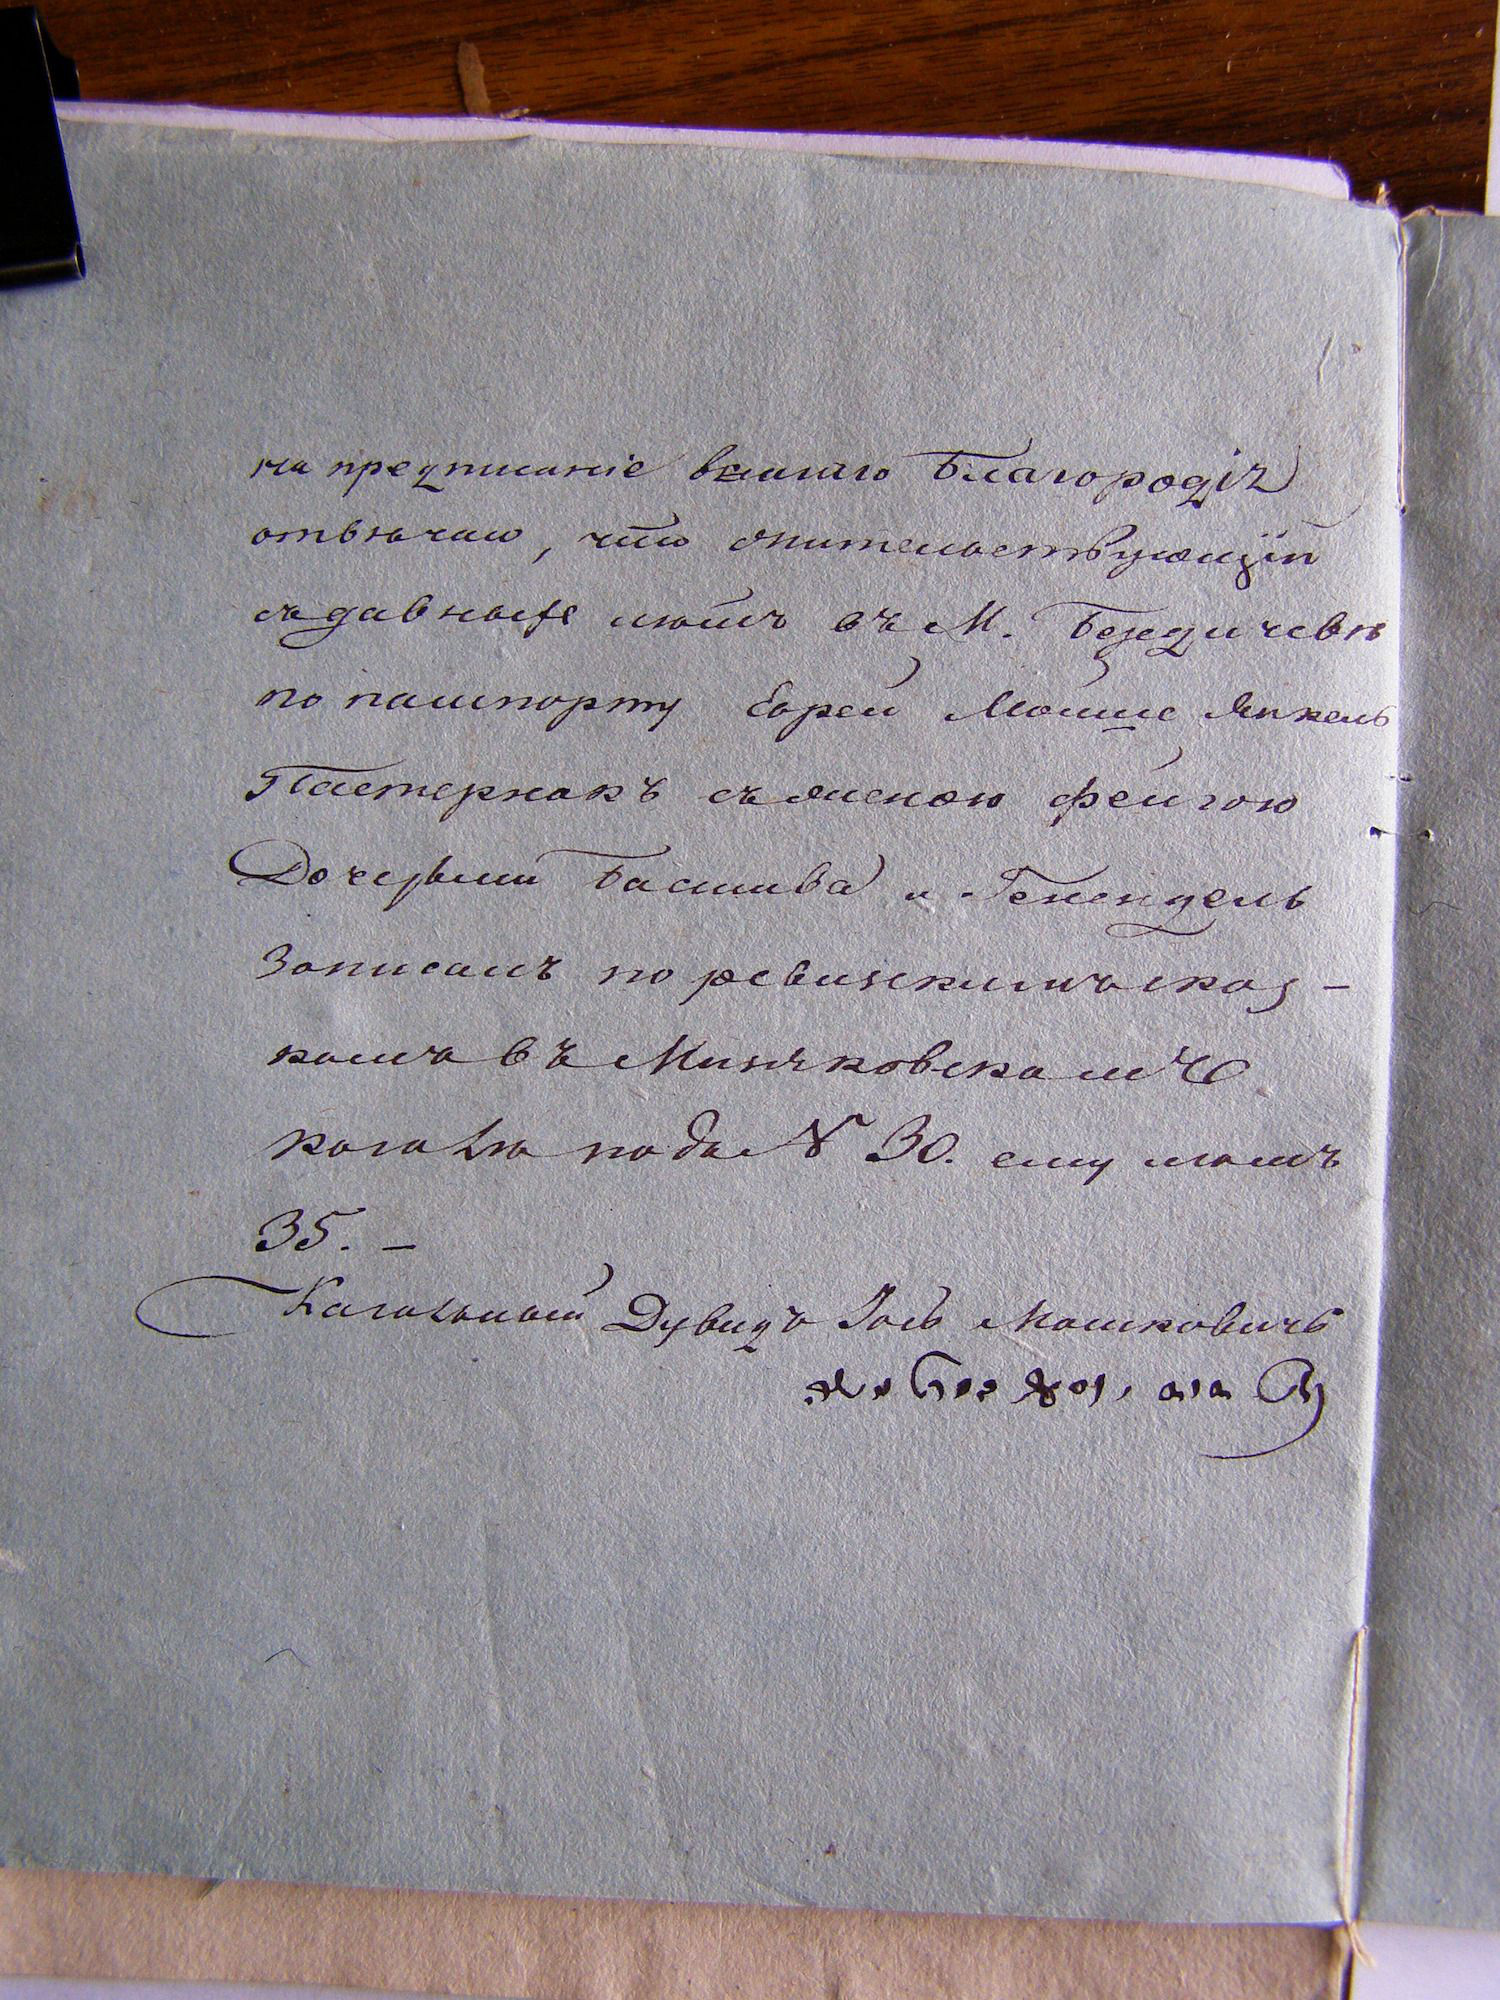 на предписаніе вашего Благородія
отвѣчаю, что жительствующій
съ давныхъ лѣтъ въ М. Бердичевѣ
по пашпорту Еврей Мошие Янкель
Пастернакъ съ женою Фейгою
Дочерьми Басшива и Генендель
Записанъ по ревизскимъ сказ-
камъ въ Миньковскомъ
кагалѣ подъ N 30. ему лѣтъ
35. —
Кагальный Дувидъ Іось Мошковичъ